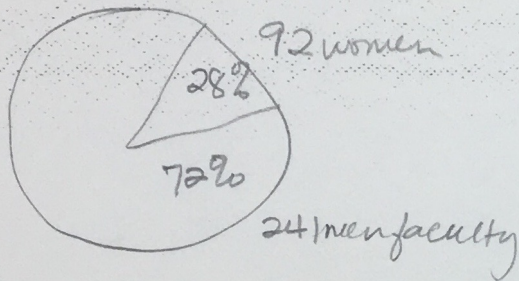 92 women
28%
72%
241 men faculty